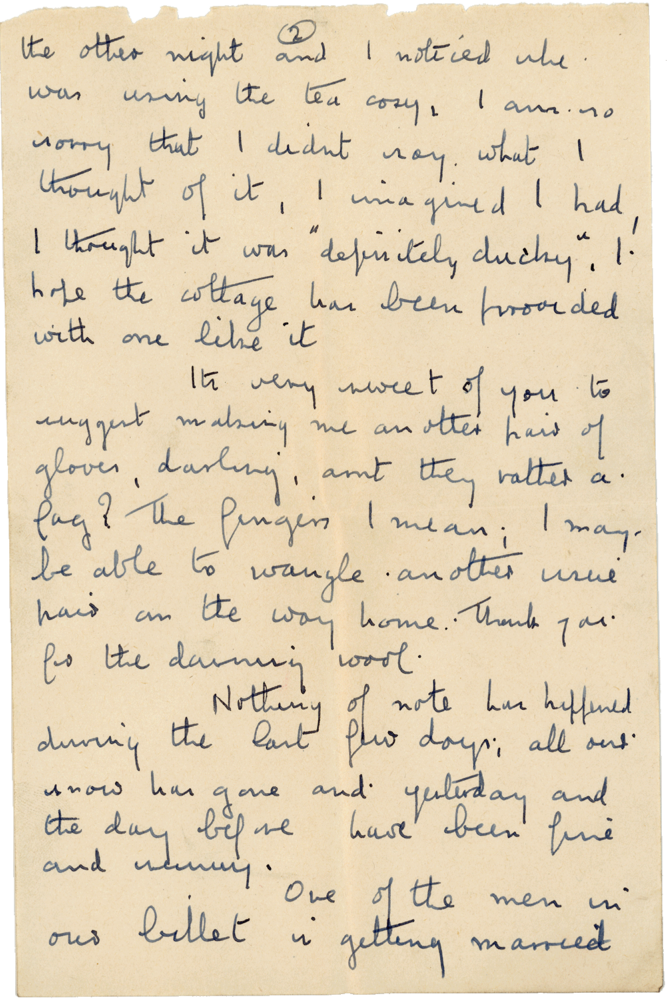 2
the other night and I noticed she
was using the tea cosy, I am so
sorry that I didnt say what I
thought of it, I imagined I had,
I thought it was "definitely ducky", I
hope the cottage has been provided
with one like it
Its very sweet of you to
suggest making me another pair of
gloves, darling, arnt they rather a
fag? The fingers I mean; I may
be able to wangle another issue
pair on the way home. Thank you
for the darning wool.
Nothing of note has happened
during the last few days; all our
snow has gone and yesterday and
the day before have been fine
and sunny.
One of the men in
our billet is getting married